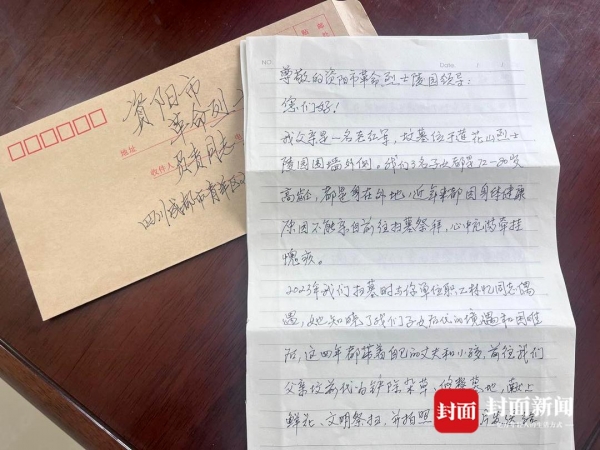 资阳市
革命烈
地址
收件人
负责同志
四川成都市青羊区
NO.
Date
尊敬的资阳市革命烈士陵园领导:
您们好!
我父亲是一名老红军,坟墓位于莲花山烈士
陵园围墙外侧。我们3名子女都是72-80岁
高龄,都是身在外地,近年来都因身体健康
原因不能亲自前往扫墓祭拜,心中充满牵挂
愧疚。
2023年我们扫墓时与你单位职工林忆同志偶
遇,她知晓了我们子女后代的境遇和困难
后,这四年都带着自己的丈夫和小孩,前往我们
父亲坟前代为铲除杂草、修整墓地,献上
鲜花、文明祭扫,并拍照
封面
封面新闻